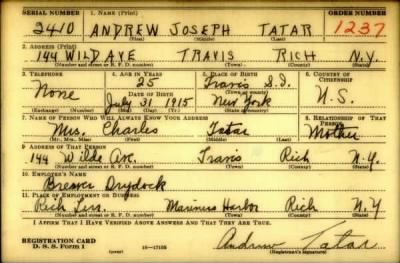 SERIAL NUMBER 1. NAME (Print) ORDER NUMBER
2410 ANDREW JOSEPH TATAR 1237
(First) (Middle) (Last)
2. ADDRESS (Print)
144 WILD AVE TRAVIS RICH N.Y.
(Number and street or R. F. D. number) (Town) (County) (State)
3. TELEPHONE 4. AGE IN YEARS 5. PLACE OF BIRTH 6. COUNTRY OF CITIZENSHIP
None 25 Travis S.I. U.S.
DATE OF BIRTH (Town or county)
July 31 1915 New York
(Exchange) (Number) (Mo.) (Day) (Yr.) (State or country)
7. NAME OF PERSON WHO WILL ALWAYS KNOW YOUR ADDRESS 8. RELATIONSHIP OF THAT PERSON
Mrs. Charles Tatar Mother
(Mr., Mrs., Miss) (First) (Middle) (Last)
9. ADDRESS OF THAT PERSON
144 Wilde Ave. Travis Rich N.Y.
(Number and street or R. F. D. number) (Town) (County) (State)
10. EMPLOYER'S NAME
Drydock
11. PLACE OF EMPLOYMENT OR BUSINESS
Rich Terr. Mariners Harbor Rich N.Y
(Number and street or R. F. D. number) (Town) (County) (State)
I AFFIRM THAT I HAVE VERIFIED ABOVE ANSWERS AND THAT THEY ARE TRUE.
REGISTRATION CARD
D. S. S. Form 1 (over) 16—17105 Andrew Tatar
(Registrant's signature)